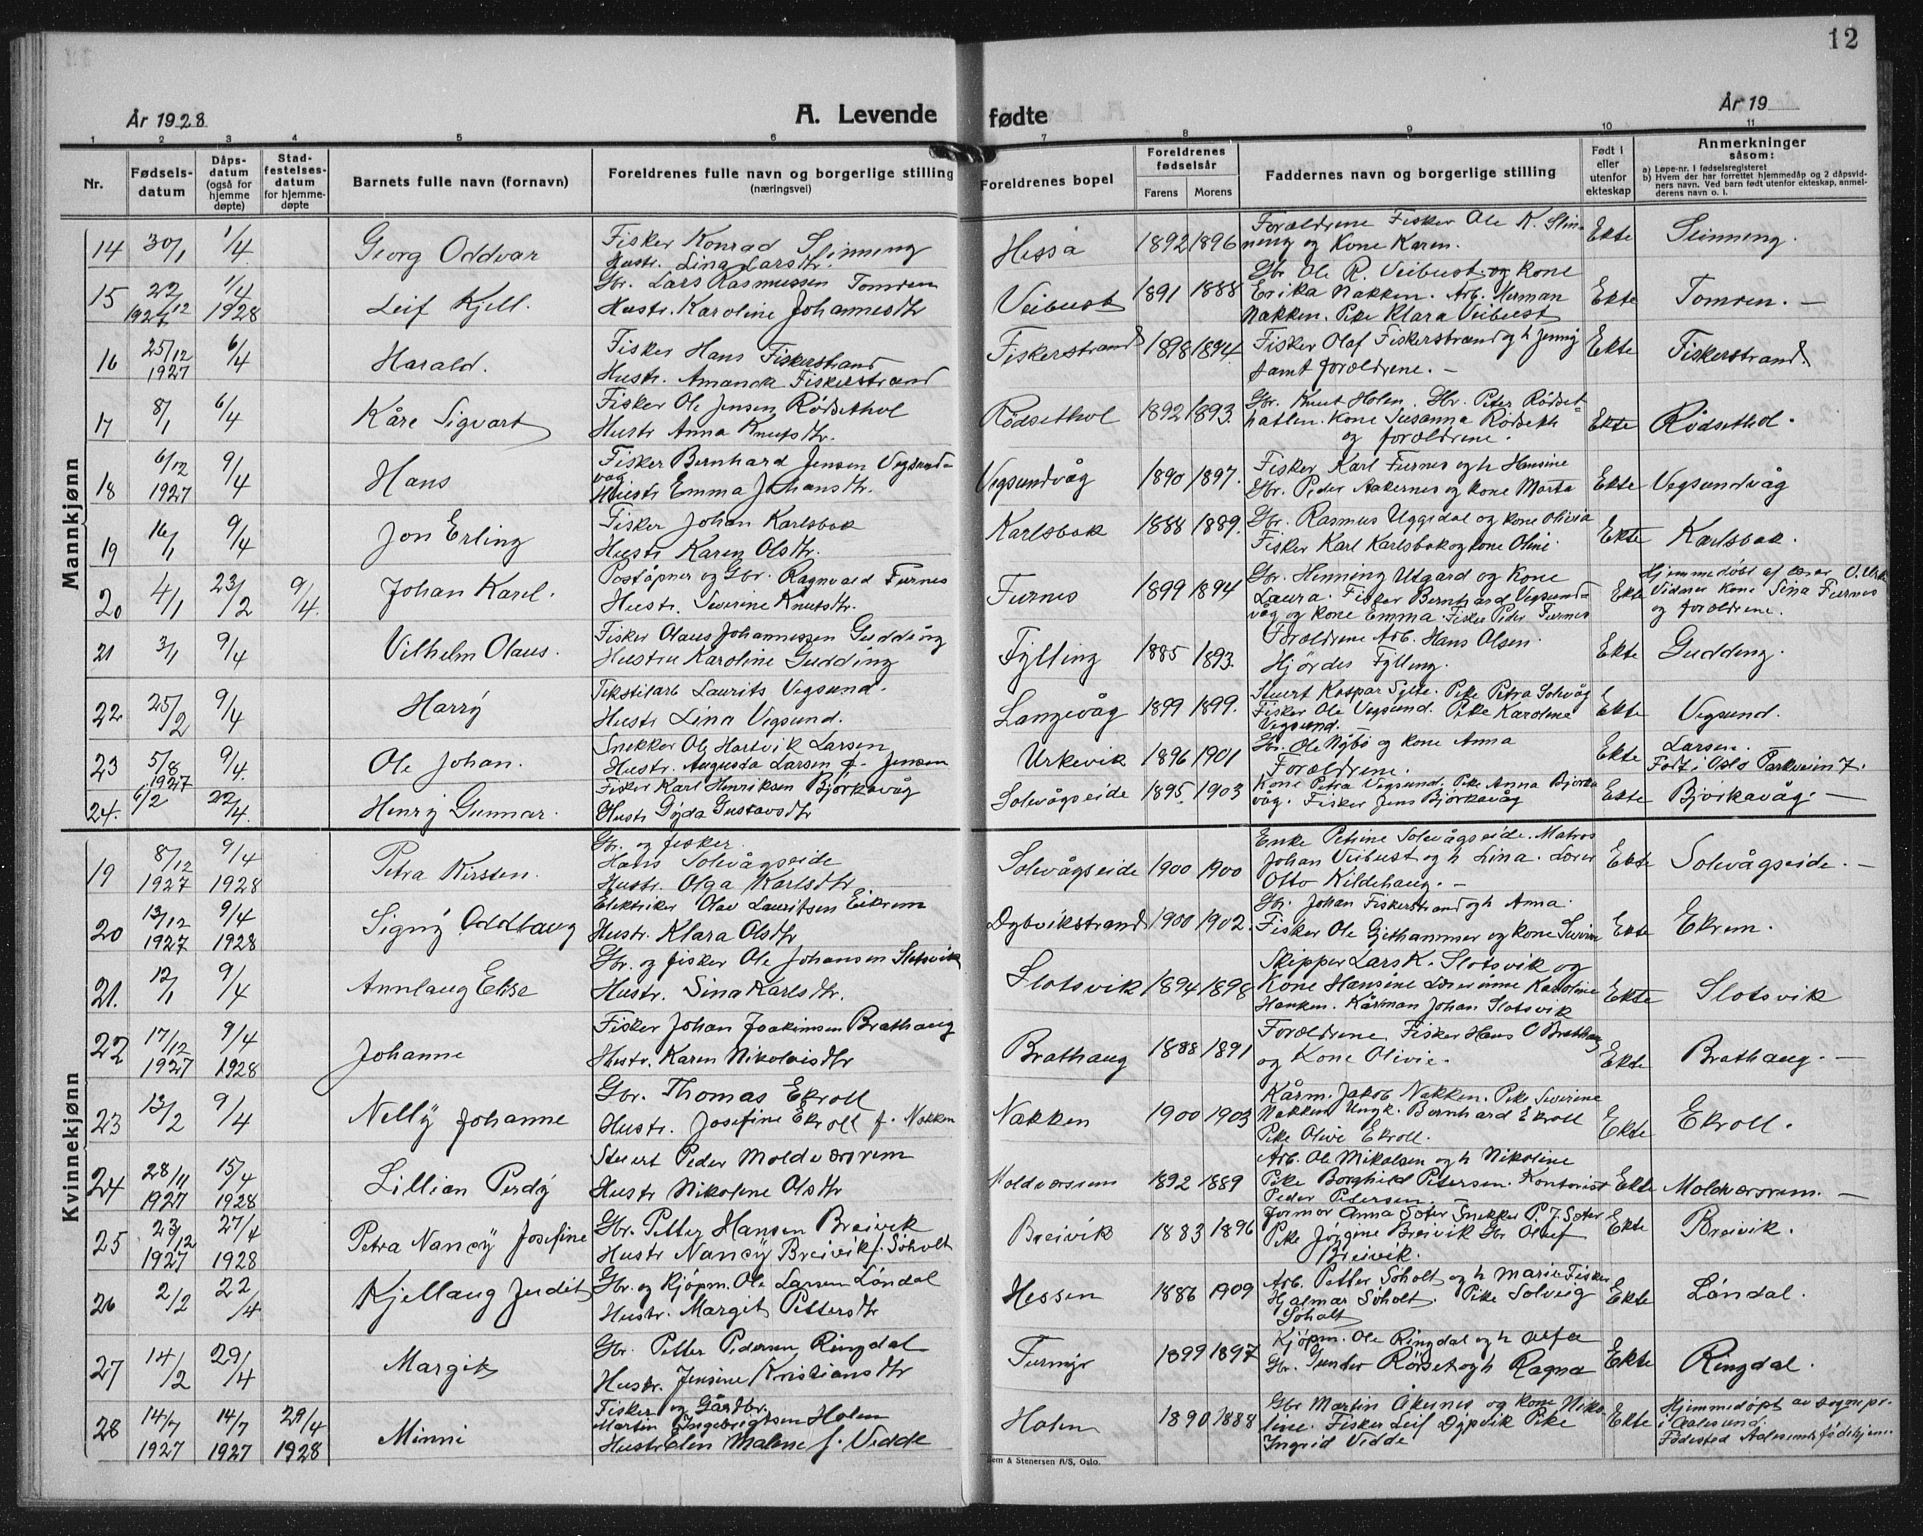 12
År 1928 A. Levende fødte År 19
1 2 3 4 5 6 7 8 9 10 11
Nr. Fødsels-datum Dåps-datum (også for hjemme døpte) Stad-festelses-datum for hjemme-døpte Barnets fulle navn (fornavn) Foreldrenes fulle navn og borgerlige stilling (næringsvei) Foreldrenes bopel Foreldrenes fødselsår Farens Morens Faddernes navn og borgerlige stilling Født i eller utenfor ekteskap Anmerkninger såsom:
a) Løpe-nr. i fødselsregisteret
b) Hvem der har forrettet hjemmedåp og 2 dåpsvidners navn. Ved barn født utenfor ekteskap, anmelderens navn o. l.
Mannkjønn
14 30/1 1/4 Georg Oddvar Fisker Konrad Slinning Hustr. Lina Larsdtr. Hessa 1892 1896 Foreldrene Fisker Ole K. Slinning og Kone Karen. Ekte Slinning.
15 22/12 1927 1/4 1928 Leif Kjell. Gbr. Lars Rasmussen Tomren Hustr. Karoline Johannesdtr Veibust 1891 1888 Gbr. Ole R. Veibust og kone Erika Nakken. Arb. Herman Nakken. Pike Klara Veibust Ekte Tomren. —
16 25/12 1927 6/4 Harald. Fisker Hans Fiskerstrand Hustr. Amanda Fiskerstrand Fiskerstrand 1898 1894. Fisker Olaf Fiskerstrand og h Jenny samt foreldrene. — Ekte Fiskerstrand
17 8/1 6/4 Kåre Sigvart Fisker Ole Jensen Rødsethol Hustr Anna Knutsdtr. Rødsethol 1892 1893. Gbr. Knut Holen. Gbr. Peter Rødset-hatlen. Kone Susanna Rødseth og foreldrene. Ekte Rødsethol.
18 6/12 1927 9/4 Hans Fisker Bernhard Jensen Vegsund-våg Hustr Emma Johansdtr. Vegsundvåg 1890 1897. Fisker Karl Furnes og h Hansine Gbr. Peder Aakernes og kone Marta Ekte Vegsundvåg
19 16/1 9/4 Jon Erling Fisker Johan Karlsbak Hustr Karen Olsdtr. Karlsbak 1888 1889. Gbr. Rasmus Uggedal og kone Olivia Fisker Karl Karlsbak og kone Oline. Ekte Karlsbak.
20 4/1 23/2 9/4. Johan Karel. Poståpner og Gbr. Ragnvald Furnes Hustr. Severine Knutsdtr. Furnes 1899 1894 Gbr. Henning Utgard og kone Laura. Fisker Bernhard Vegsund-våg og kone Emma. Fisker Peder Furnes Ekte Hjemmedøbt af lærer O. Vidner kone Sina Furnes og foreldrene.
21 3/1 9/4 Vilhelm Olaus. Fisker Olaus Johannessen Gudding Hustru Karoline Gudding Fylling 1885 1893. Foreldrene Arb. Hans Olsen. Hjørdes Fylling. Ekte Gudding.
22 25/2 9/4 Harrÿ Tekstilarb Laurits Vegsund. Hustr Lina Vegsund. Langevåg 1899 1899. Stuert Kaspar Sylte. Pike Petra Solvåg Fisker Ole Vegsund. Pike Karoline Vegsund. Ekte Vegsund.
23 5/8 1927 9/4. Ole Johan. Snekker Ole Hartvik Larsen Hustr. Augusta Larsen f. Jensen Urkevik 1896 1901 Gbr. Ole Nybø og kone Anna Foreldrene. Ekte Larsen. Født i Oslo Parkveien 7.
24. 6/2 22/4. Henrÿ Gunnar. Fisker Karl Henriksen Bjørkavåg Hustr Gyda Gustavsdtr Solevågseide 1895. 1903 Kone Petra Vegsund. Pike Anna Bjørkavåg. Fisker Jens Bjørkavåg Ekte Bjørkavåg. —
Kvinnekjønn
19 8/12 1927 9/4 1928 Petra Kirsten. Gbr. og fisker Hans Solevågseide Hustr. Olga Karlsdtr Solevågseide 1900 1900 Enke Petrine Solevågseide. Matros Johan Veibust og h Lina. Lærer Otto Kildehaug. — Ekte Solevågseide. —
20 13/12 1927 9/4 1928 Signÿ Oddlaug Elektriker Olav Lauritsen Eikrem Hustr. Klara Olsdtr Dybvikstrand 1900 1902. Gbr. Johan Fiskerstrand og h Anna. Fisker Ole Gjethammer og kone Severine Ekte Ekrem.
21. 12/1 9/4 Annlaug Elise Gbr. og fisker Ole Johansen Slotsvik Hustr. Sina Karlsdtr. Slotsvik 1894 1898 Skipper Lars K. Slotsvik og Kone Hansine Lærerinne Karoline Hanken. Kårman Johan Slotsvik Ekte Slotsvik
22 17/12 1927 9/4 1928 Johanne Fisker Johan Joakimsen Brathaug Hustr. Karen Nikolaisdtr Brathaug 1888 1891 Foreldrene. Fisker Hans O Brathaug og Kone Olivie. Ekte Brathaug. —
23 13/2 9/4 Nellÿ Johanne Gbr. Thomas Ekroll Hustr. Josefine Ekroll f. Nakken Nakken 1900 1903 Kårm. Jakob Nakken. Pike Severine Nakken Ungk. Bernhard Ekroll Pike Olive Ekroll. Ekte Ekroll.
24 28/11 1927 15/4 1928 Lillian Perdÿ Stuert Peder Moldværsrem Hustr Nikoline Olsdtr Moldværsrem 1892 1889 Arb. Ole Mikalsen og h Nikoline Pike Borghild Petersen. Kontorist Peder Petersen. Ekte Moldværsrem. —
25 23/12 1927 27/4 1928 Petra Nancÿ Josefine Gbr. Petter Hansen Breivik Hustr Nancÿ Breivik f. Søholt Breivik 1883 1896 Jormor Anna Sæter Snekker P. J. Sæter Pike Jørgine Breivik Gbr Oluf Breivik. Ekte Breivik.
26 2/2 22/4 Kjellaug Judit Gbr. og kjøpm. Ole Larsen Løndal Hustr. Margit Pettersdtr Hessen 1886 1909 Arb. Petter Søholt og h Marie Fisker Hjalmar Søholt. Pike Solveig Søholt Ekte Løndal.
27 14/2 29/4 Margit Gbr. Petter Pedersen Ringdal Hustr. Jensine Kristiansdtr Furmyr 1899 1897 Kjøpm. Ole Ringdal og h Alfa Gbr. Gunder Rørset og h Ragna Ekte Ringdal.
28 14/7 1927 14/7 1927 29/4 1928 Minni Fisker og Gårdbr. Martin Ingebrigtsen Holen Hustr Elen Malene f. Vedde Holen 1890 1888 Gbr Martin Akernes og kone Nikoline. Fisker Leif Dypvik Pike Ingrid Vedde Ekte Hjemmedøpt av sognepr. i Aalesund. Fødested Aalesunds fødehjem.
Sem & Stenersen A/S, Oslo.